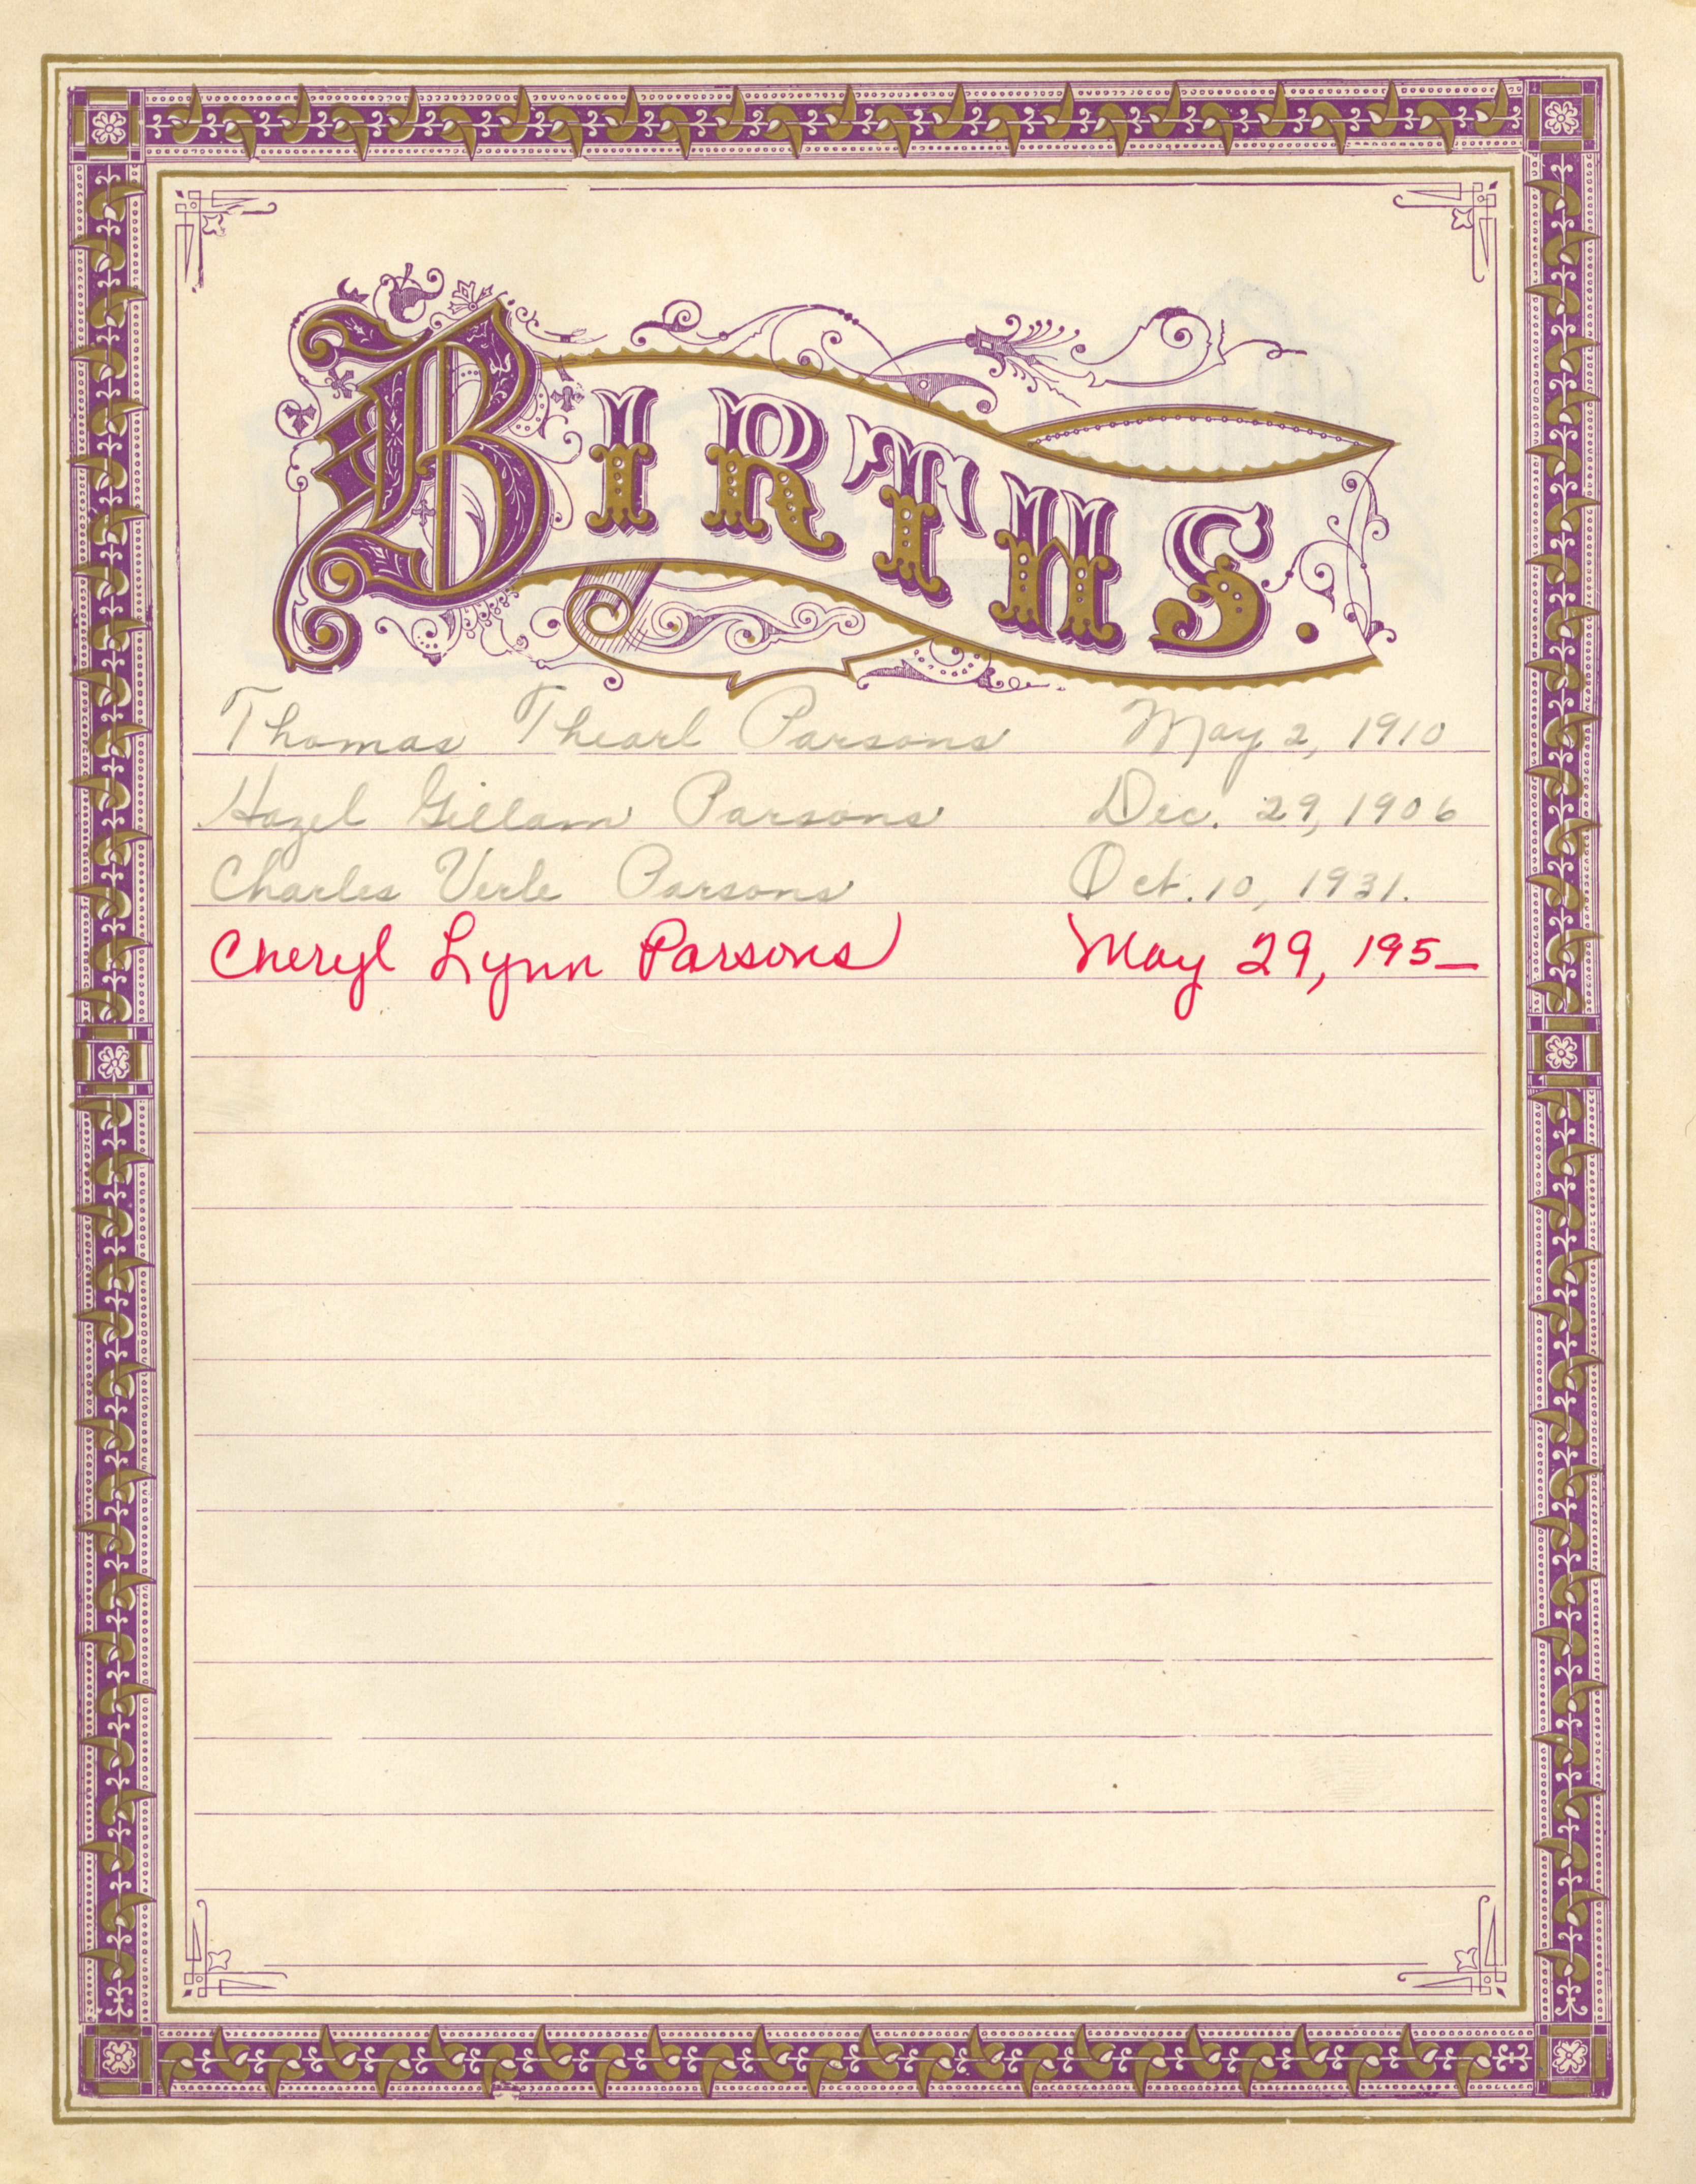 BIRTHS.
Thomas Thearl Parsons May 2, 1910
Hazel Gillam Parsons Dec. 29, 1906
Charles Verle Parsons Oct. 10, 1931.
Cheryl Lynn Parsons May 29, 195_